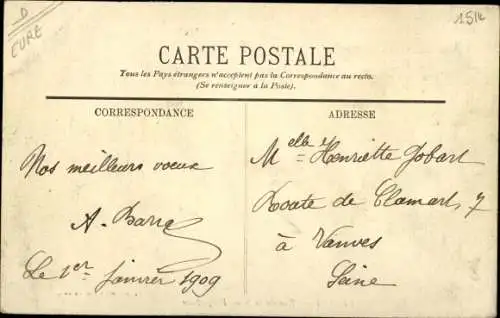 D
CURE
1514
CARTE POSTALE
Tous les Pays étrangers n'acceptent pas la Correspondance au recto.
(Se renseigner à la Poste).
CORRESPONDANCE
Nos meilleurs voeux
A. Barre
Le 1er janvier 1909
ADRESSE
Melle Henriette Jobart
Route de Clamart, 7
à Vanves
Seine